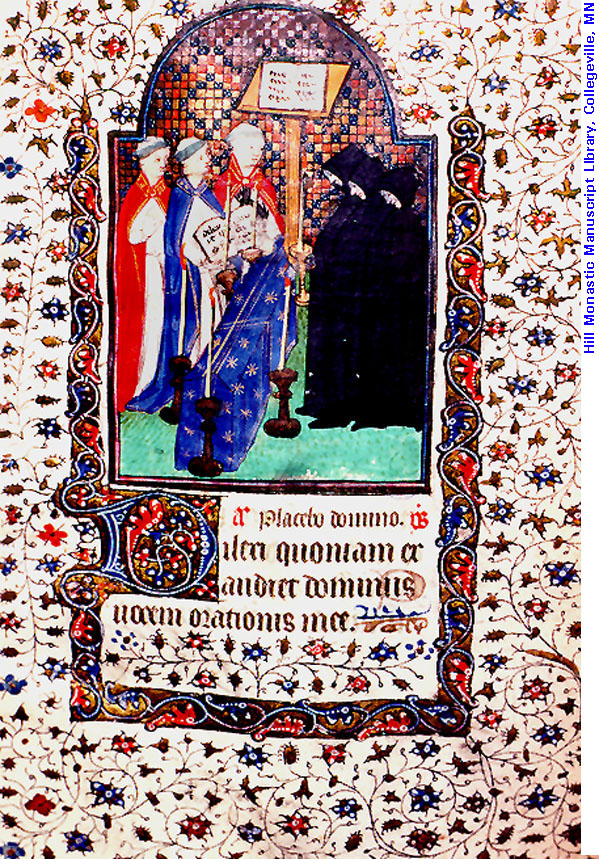 Placebo domino.
Dilexi quoniam ex
audiet dominus
uocem orationis mee.
Hill Monastic Manuscript Library, Collegeville, MN